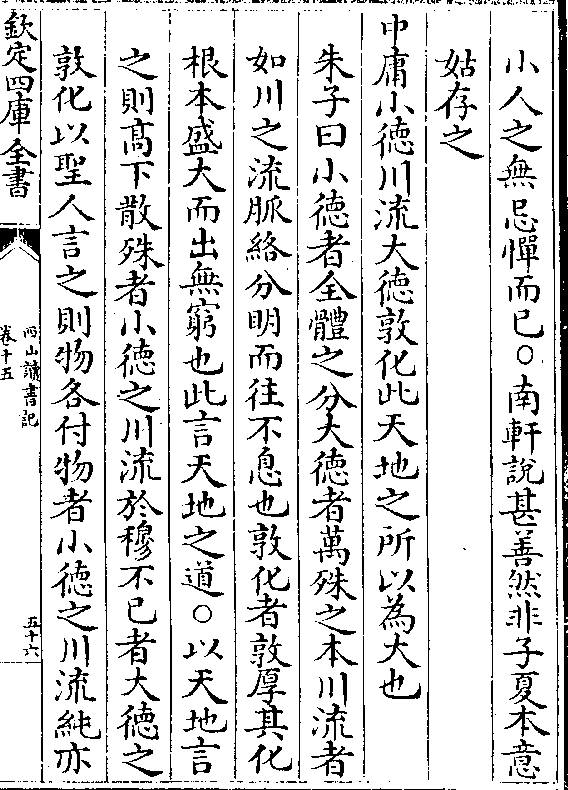 小人之無忌憚而已○南軒説甚善然非子夏本意
姑存之
中庸小徳川流大徳敦化此天地之所以為大也
朱子曰小徳者全體之分大徳者萬殊之本川流者
如川之流脈絡分明而往不息也敦化者敦厚其化
根本盛大而出無窮也此言天地之道○以天地言
之則髙下散殊者小徳之川流於穆不已者大徳之
敦化以聖人言之則物各付物者小徳之川流純亦
欽定四庫全書
西山讀書記
卷十五
五十六